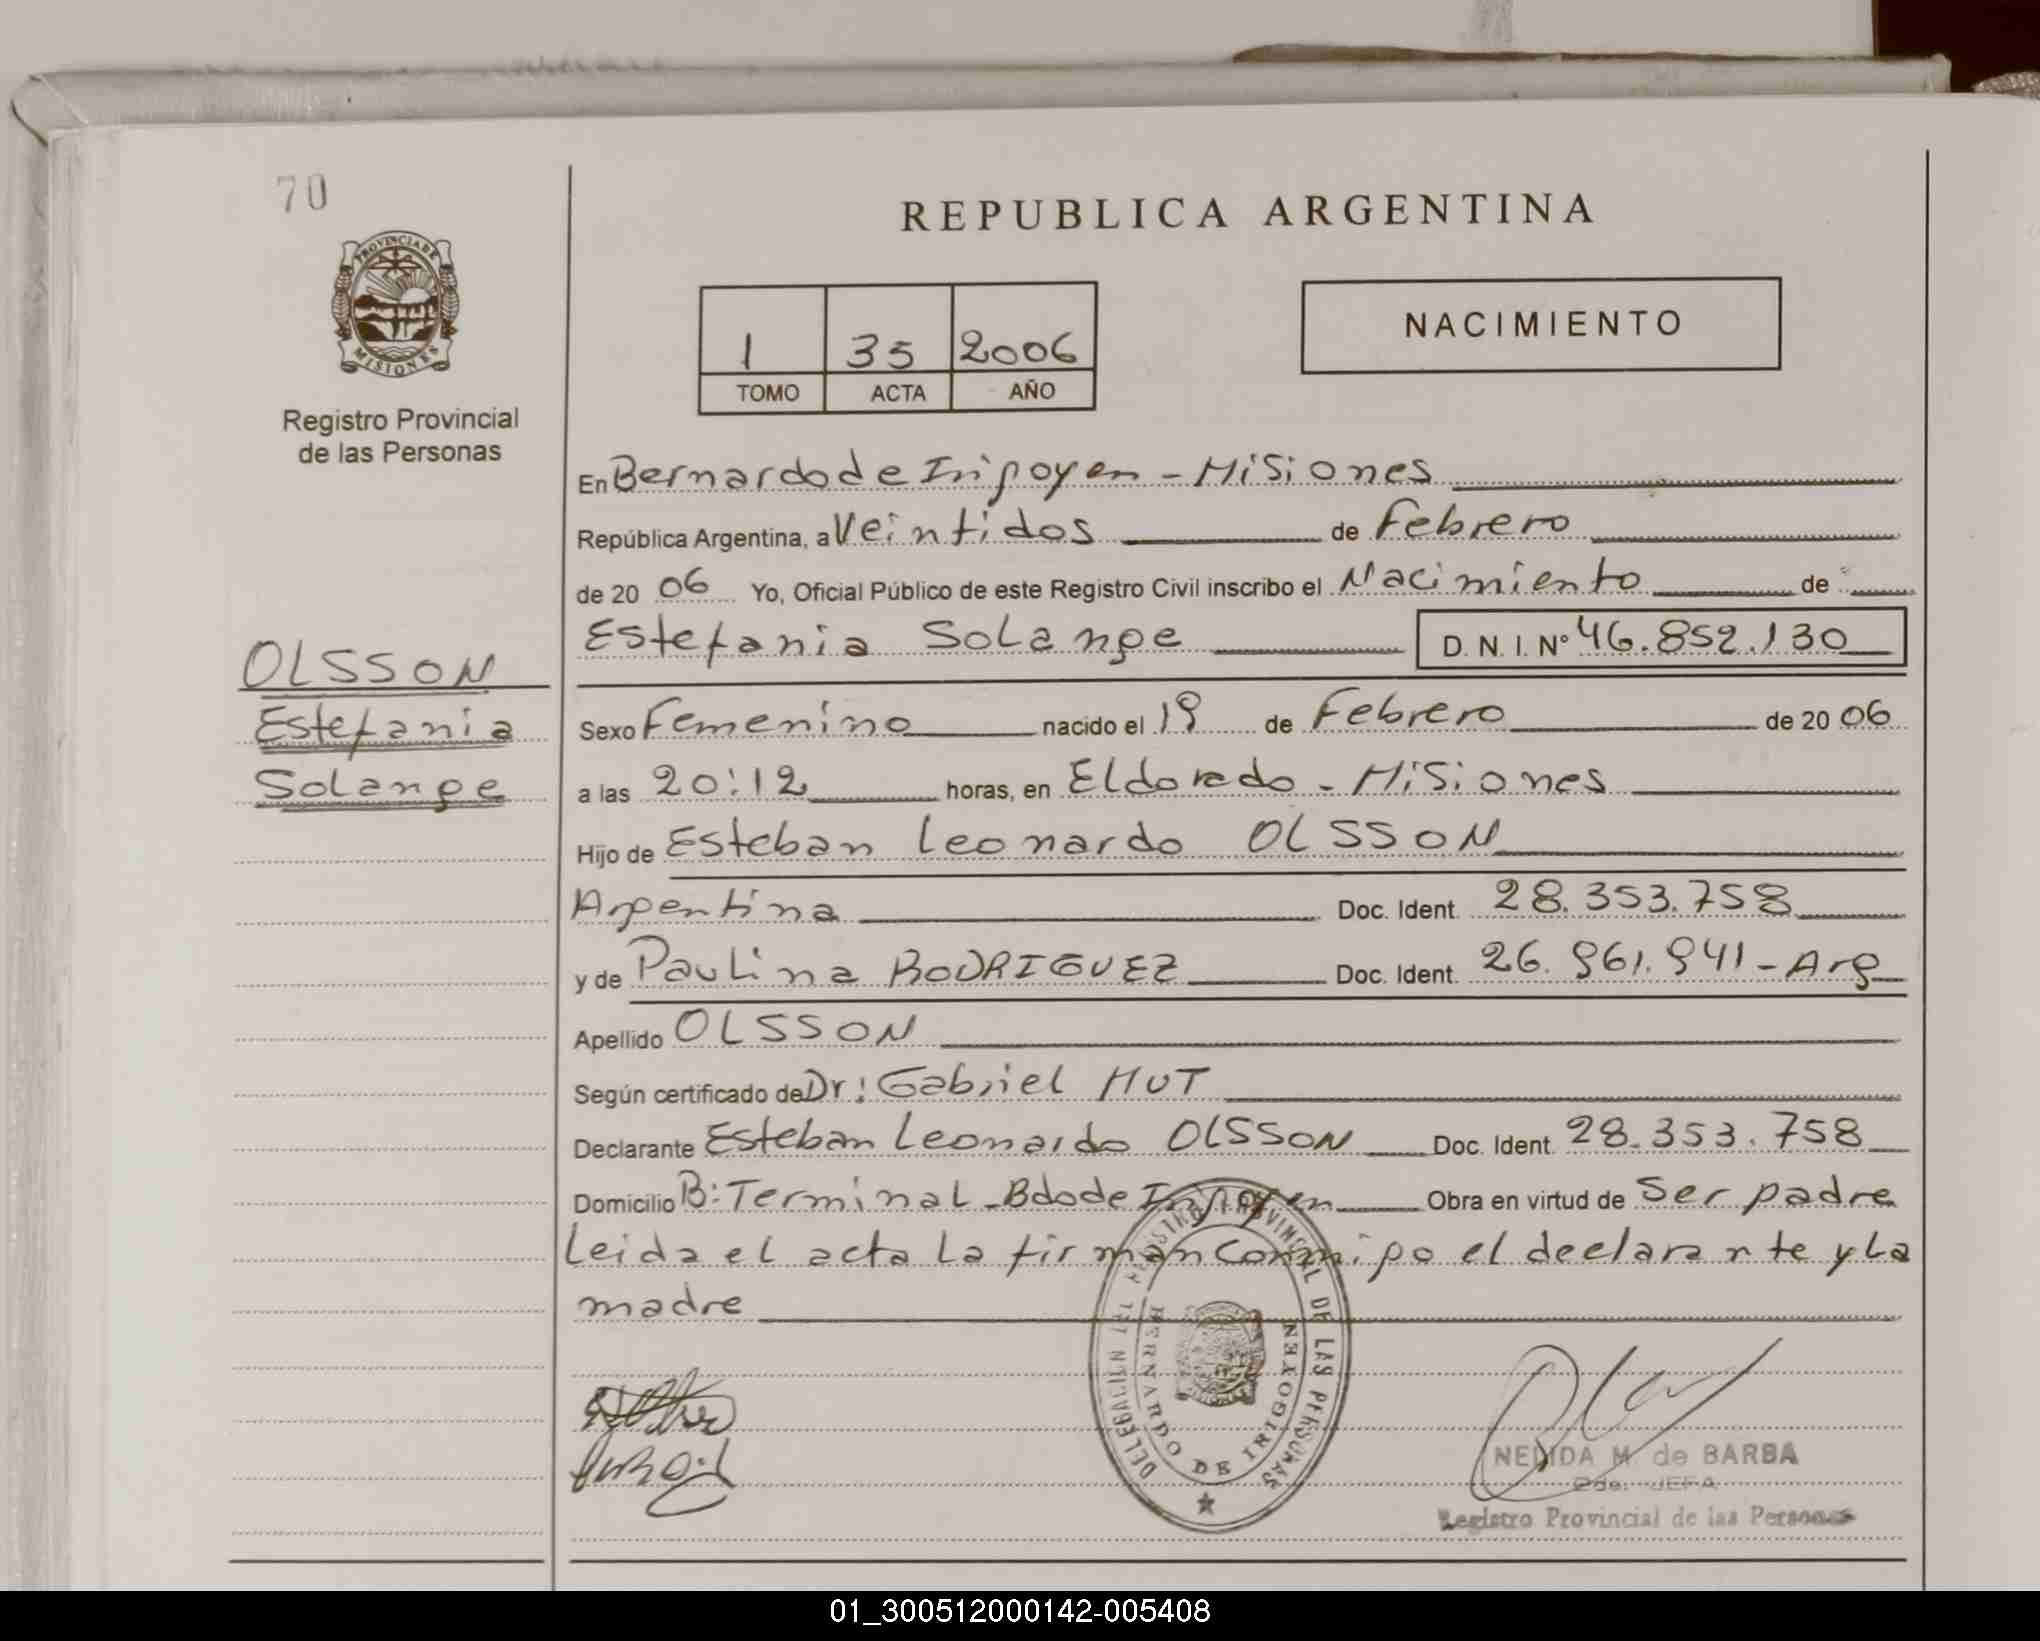 70
PROVINCIA DE
MISIONES
Registro Provincial
de las Personas
OLSSON
Estefania
Solange
REPUBLICA ARGENTINA
1 35 2006
TOMO ACTA AÑO
NACIMIENTO
En Bernardo de Irigoyen - Misiones
República Argentina, a Veintidos de Febrero
de 20 06 Yo, Oficial Público de este Registro Civil inscribo el Nacimiento de
Estefania Solange D. N. I. Nº 46.852.130
Sexo Femenino nacido el 19 de Febrero de 20 06
a las 20:12 horas, en Eldorado - Misiones
Hijo de Esteban Leonardo OLSSON
Argentina Doc. Ident. 28.353.758
y de Paulina RODRIGUEZ Doc. Ident. 26.961.941 - Arg
Apellido OLSSON
Según certificado de Dr: Gabriel HUT
Declarante Esteban Leonardo OLSSON Doc. Ident. 28.353.758
Domicilio B: Terminal - Bdo de Irigoyen Obra en virtud de Ser padre
Leida el acta la firman conmigo el declarante y la
madre
DELEGACION DEL REGISTRO PROVINCIAL DE LAS PERSONAS
BERNARDO DE IRIGOYEN
NELIDA M. de BARBA
2da. JEFA
Registro Provincial de las Personas
01_300512000142-005408